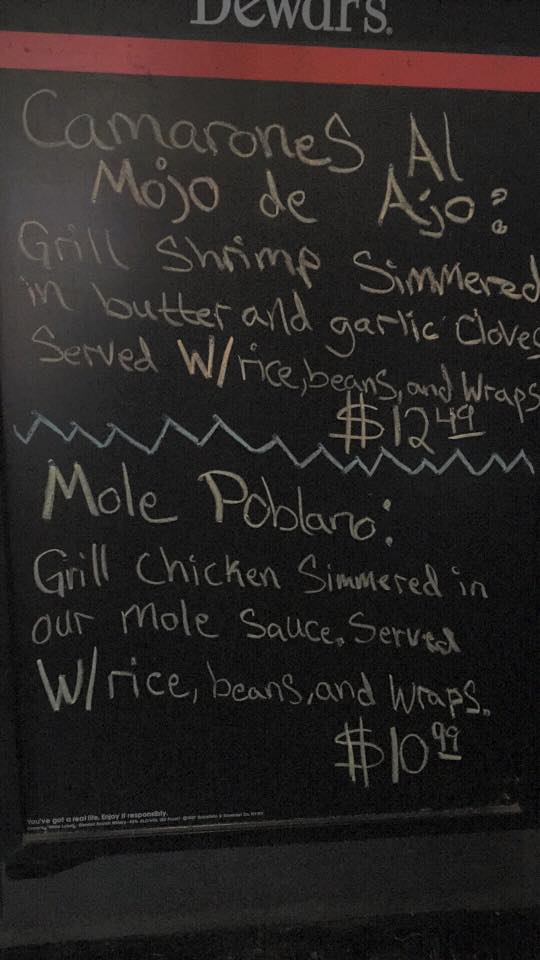 Dewar's.
Camarones Al
Mojo de Ajo:
Grill Shrimp Simmered
in butter and garlic Cloves
Served W/rice, beans, and Wraps
$12.49
Mole Poblano:
Grill Chicken Simmered in
our Mole Sauce. Served
W/rice, beans, and Wraps.
$10.99
You've got a real life. Enjoy it responsibly.